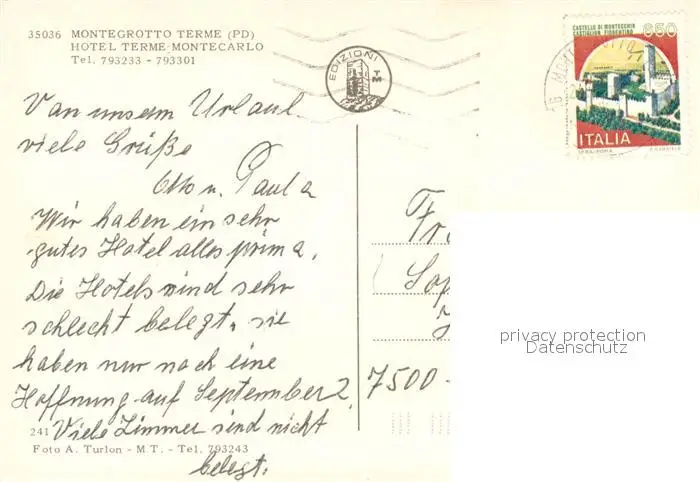 35036 MONTEGROTTO TERME (PD)
HOTEL TERME MONTECARLO
Tel. 793233 - 793301
EDIZIONI
TM
CASTELLO DI MONTECCHIO
CASTIGLION FIORENTINO
650
ITALIA
Von unserm Urlaub
viele Grüße
Otto u. Paula
Wir haben ein sehr
gutes Hotel alles prima.
Die Hotels sind sehr
schlecht belegt, sie
haben nur noch eine
Hoffnung auf September?
Viele Zimmer sind nicht
belegt.
241
Foto A. Turlon - M.T. - Tel. 793243
Fr
Sop
7500
privacy protection
Datenschutz